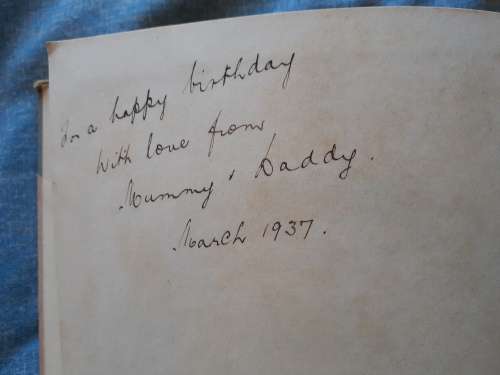 For a happy birthday
with love from
Mummy & Daddy.
March 1937.